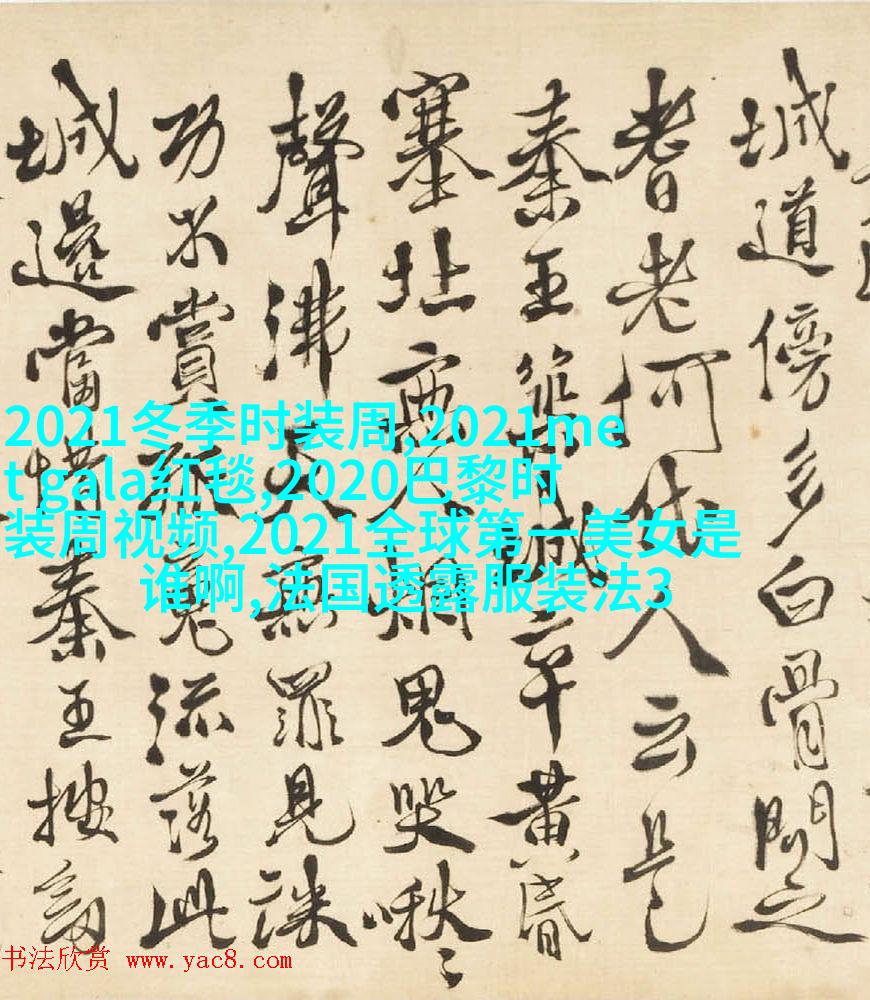 城道傍多白骨問之
耆老何代人云是
秦王築城卒黃昏
塞北無人煙鬼哭啾〻
聲沸天無罪見誅
功不賞孤魂流落此
城邊當昔秦王按劍
2021冬季时装周,2021me
t gala红毯,2020巴黎时
装周视频,2021全球第一美女是
谁啊,法国透露服装法3
书法欣赏 www.yac8.com